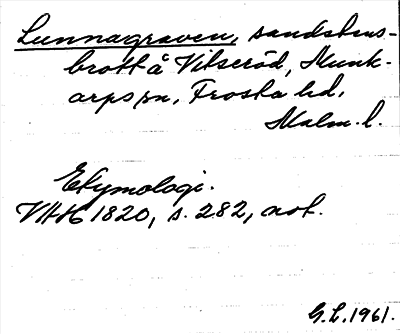 Lunnagraven, sandstens-
brott å Vitseröd, Munk-
arps sn, Frosta hd,
Malm. l.
Etymologi.
VHH 1820, s. 282, not.
G.L. 1961.